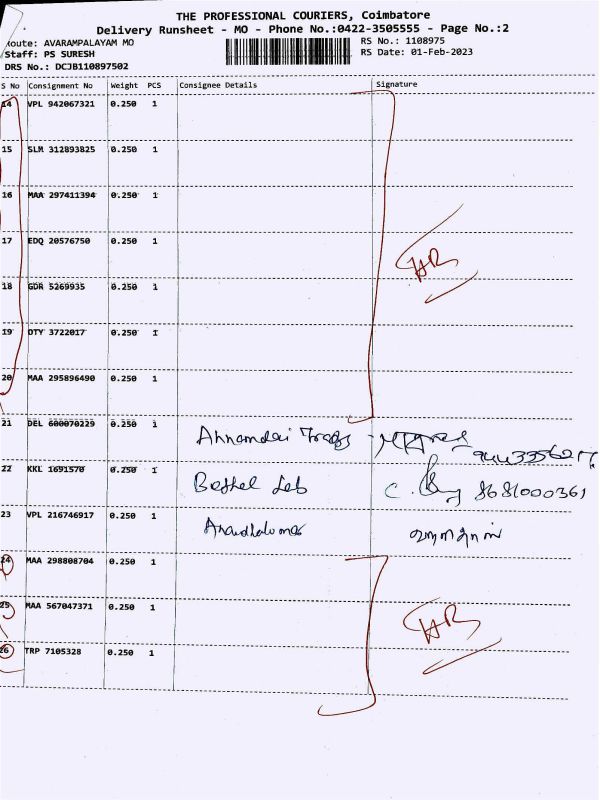 THE PROFESSIONAL COURIERS, Coimbatore
Delivery Runsheet - MO - Phone No.:0422-3505555 - Page No.:2
Route: AVARAMPALAYAM MO
RS No.: 1108975
Staff: PS SURESH
RS Date: 01-Feb-2023
DRS No.: DCJB110897502
S No Consignment No Weight PCS Consignee Details Signature
14 VPL 942067321 0.250 1
15 SLM 312893825 0.250 1
16 MAA 297411394 0.250 1
17 EDQ 20576750 0.250 1
18 GDR 5269935 0.250 1
19 OTY 3722017 0.250 1
20 MAA 295896490 0.250 1
21 DEL 600070229 0.250 1
22 KKL 1691570 0.250 1 Bethel Leb C. 8681000361
23 VPL 216746917 0.250 1
24 MAA 298808704 0.250 1
25 MAA 567047371 0.250 1
26 TRP 7105328 0.250 1